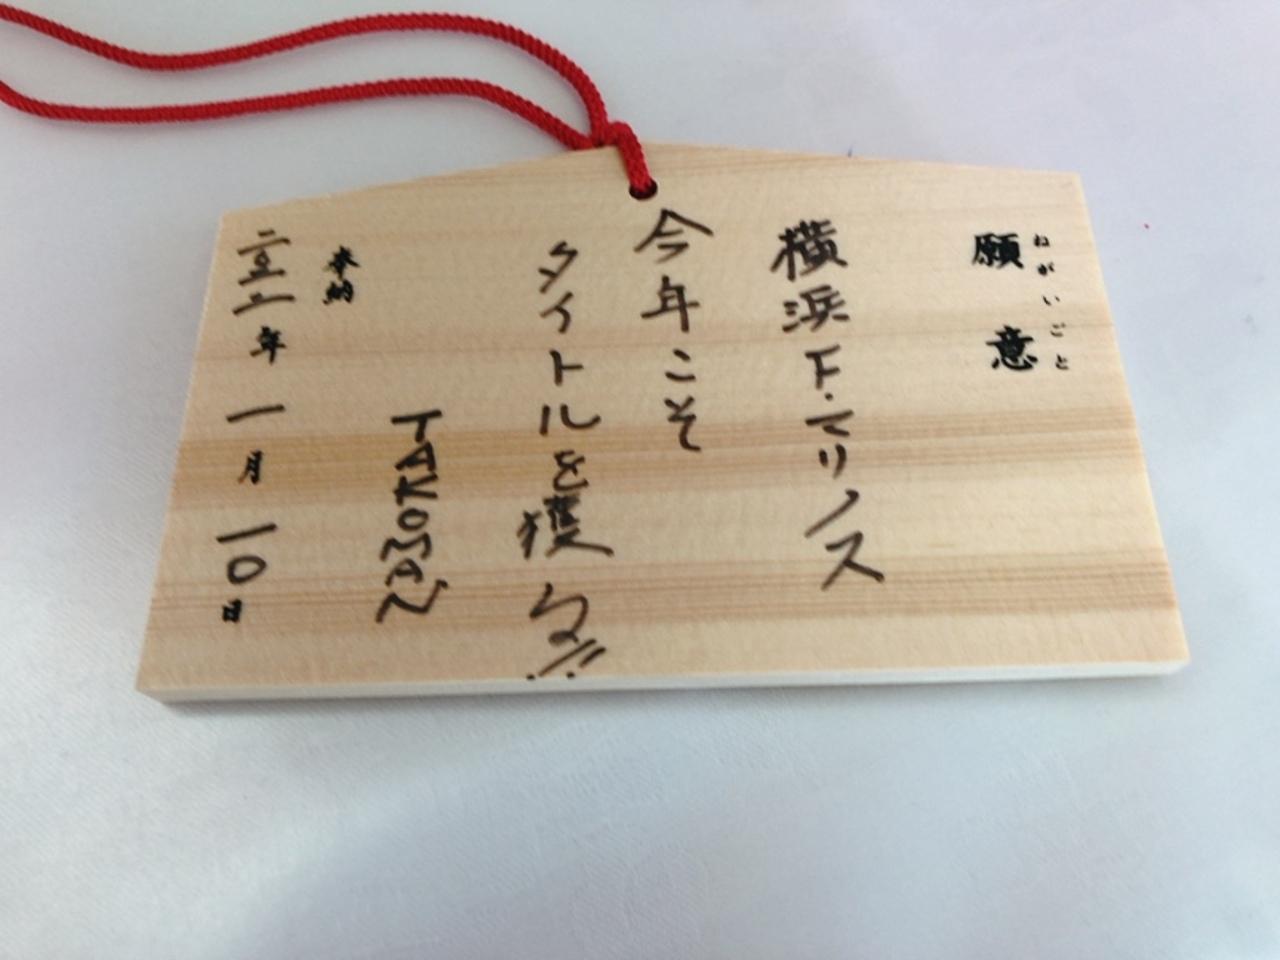 ねがいごと
願意
横浜F・マリノス
今年こそ
タイトルを獲る!!
TAKOMAN
奉納
年一月一〇日